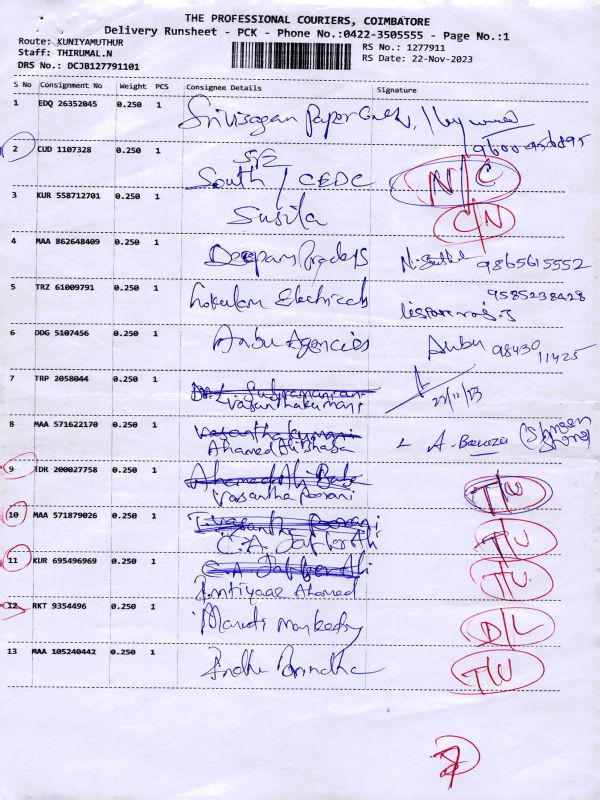 THE PROFESSIONAL COURIERS, COIMBATORE
Delivery Runsheet - PCK - Phone No.:0422-3505555 - Page No.:1
Route: KUNIYAMUTHUR
Staff: THIRUMAL.N
DRS No.: DCJB127791101
RS No.: 1277911
RS Date: 22-Nov-2023
S No Consignment No Weight PCS Consignee Details Signature
1 EDQ 26352045 0.250 1
2 CUD 1107328 0.250 1 South / CEDC N/C
3 KUR 558712701 0.250 1 Susila C/N
4 MAA 862648409 0.250 1 9865615552
5 TRZ 61009791 0.250 1 Gokulam Electricals 9585238428
6 DDG 5107456 0.250 1 Anbu Agencies Anbu 98430 11425
7 TRP 2058044 0.250 1 Vasanthakumari 22/11/23
8 MAA 571622170 0.250 1 Vasanthakumari
Ahamed Ali Bhasa
9 TDR 200027758 0.250 1 Ahamed Ali Basha
Vasantha Poorani T/U
10 MAA 571879026 0.250 1 Vasantha Poorani
C.A. Jaffer Ali T/U
11 KUR 695496969 0.250 1 C.A. Jaffer Ali
Imtiyaaz Ahamed T/U
12 RKT 9354496 0.250 1 Maruti D/L
13 MAA 105240442 0.250 1 T/U
7